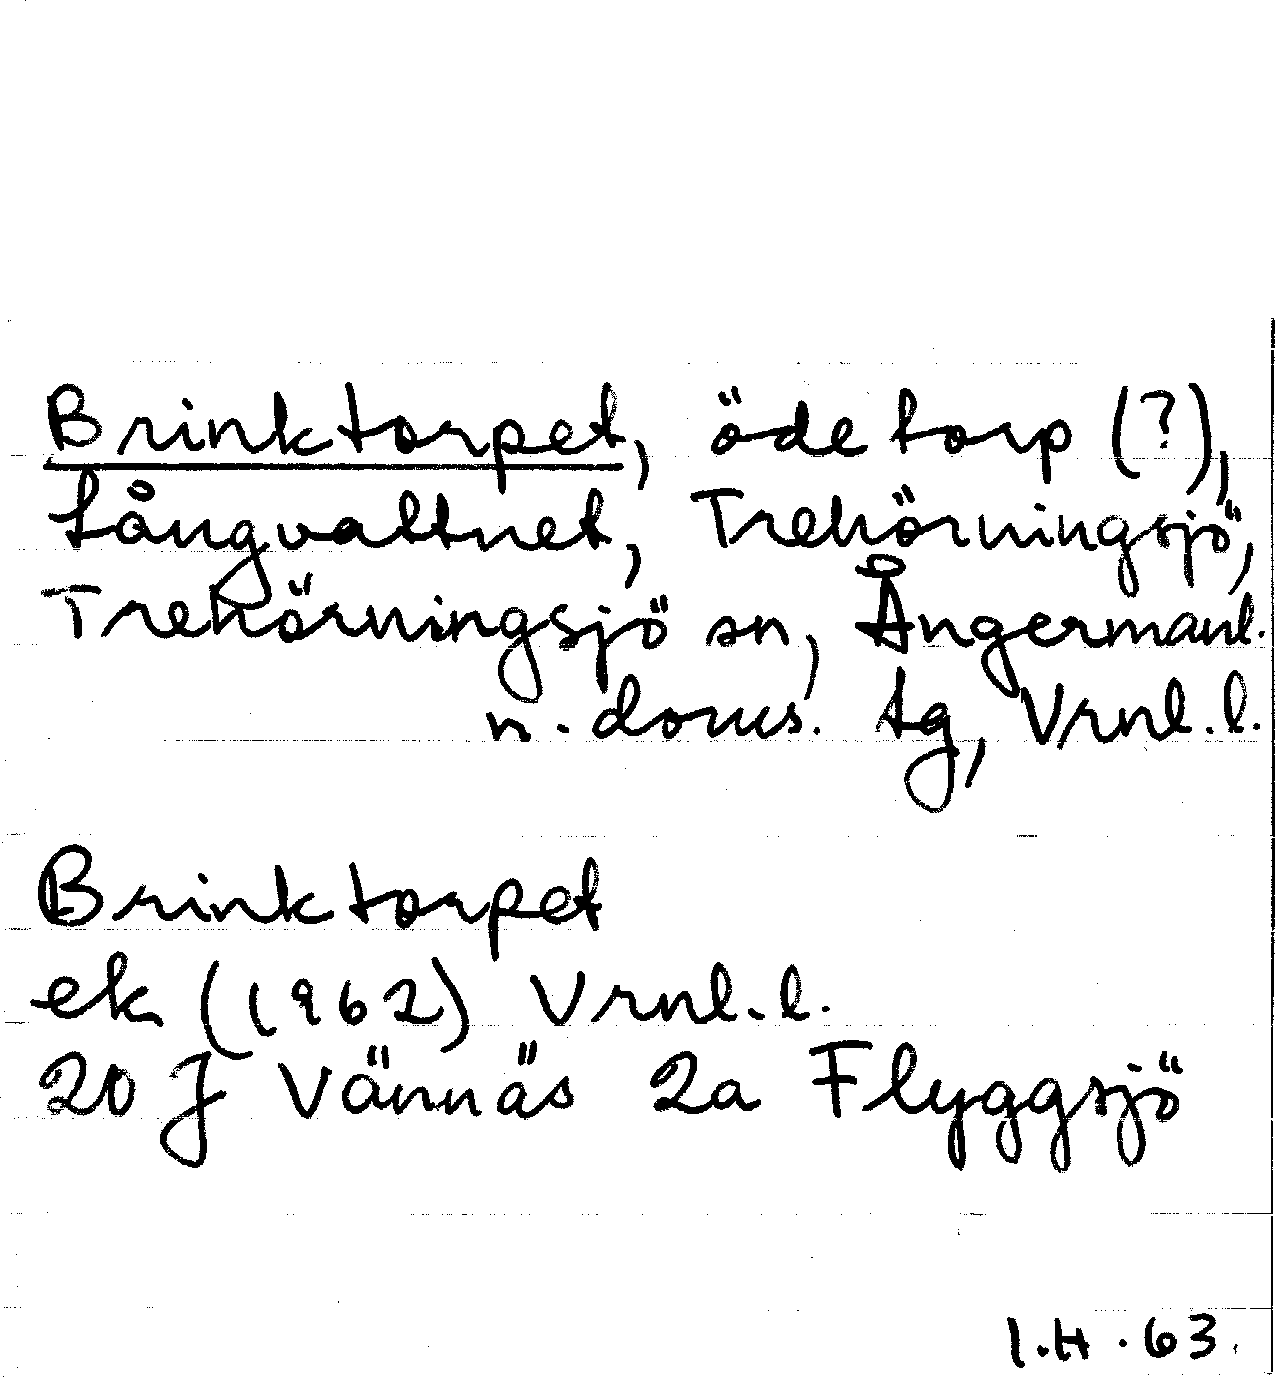 Brinktorpet, öde torp (?),
Långvattnet, Trehörningsjö,
Trehörningsjö sn, Ångermanl.
n. doms. tg, Vrnl. l.
Brinktorpet
ek (1962) Vrnl. l.
20 J Vännäs 2a Flyggsjö
I.H. 63.